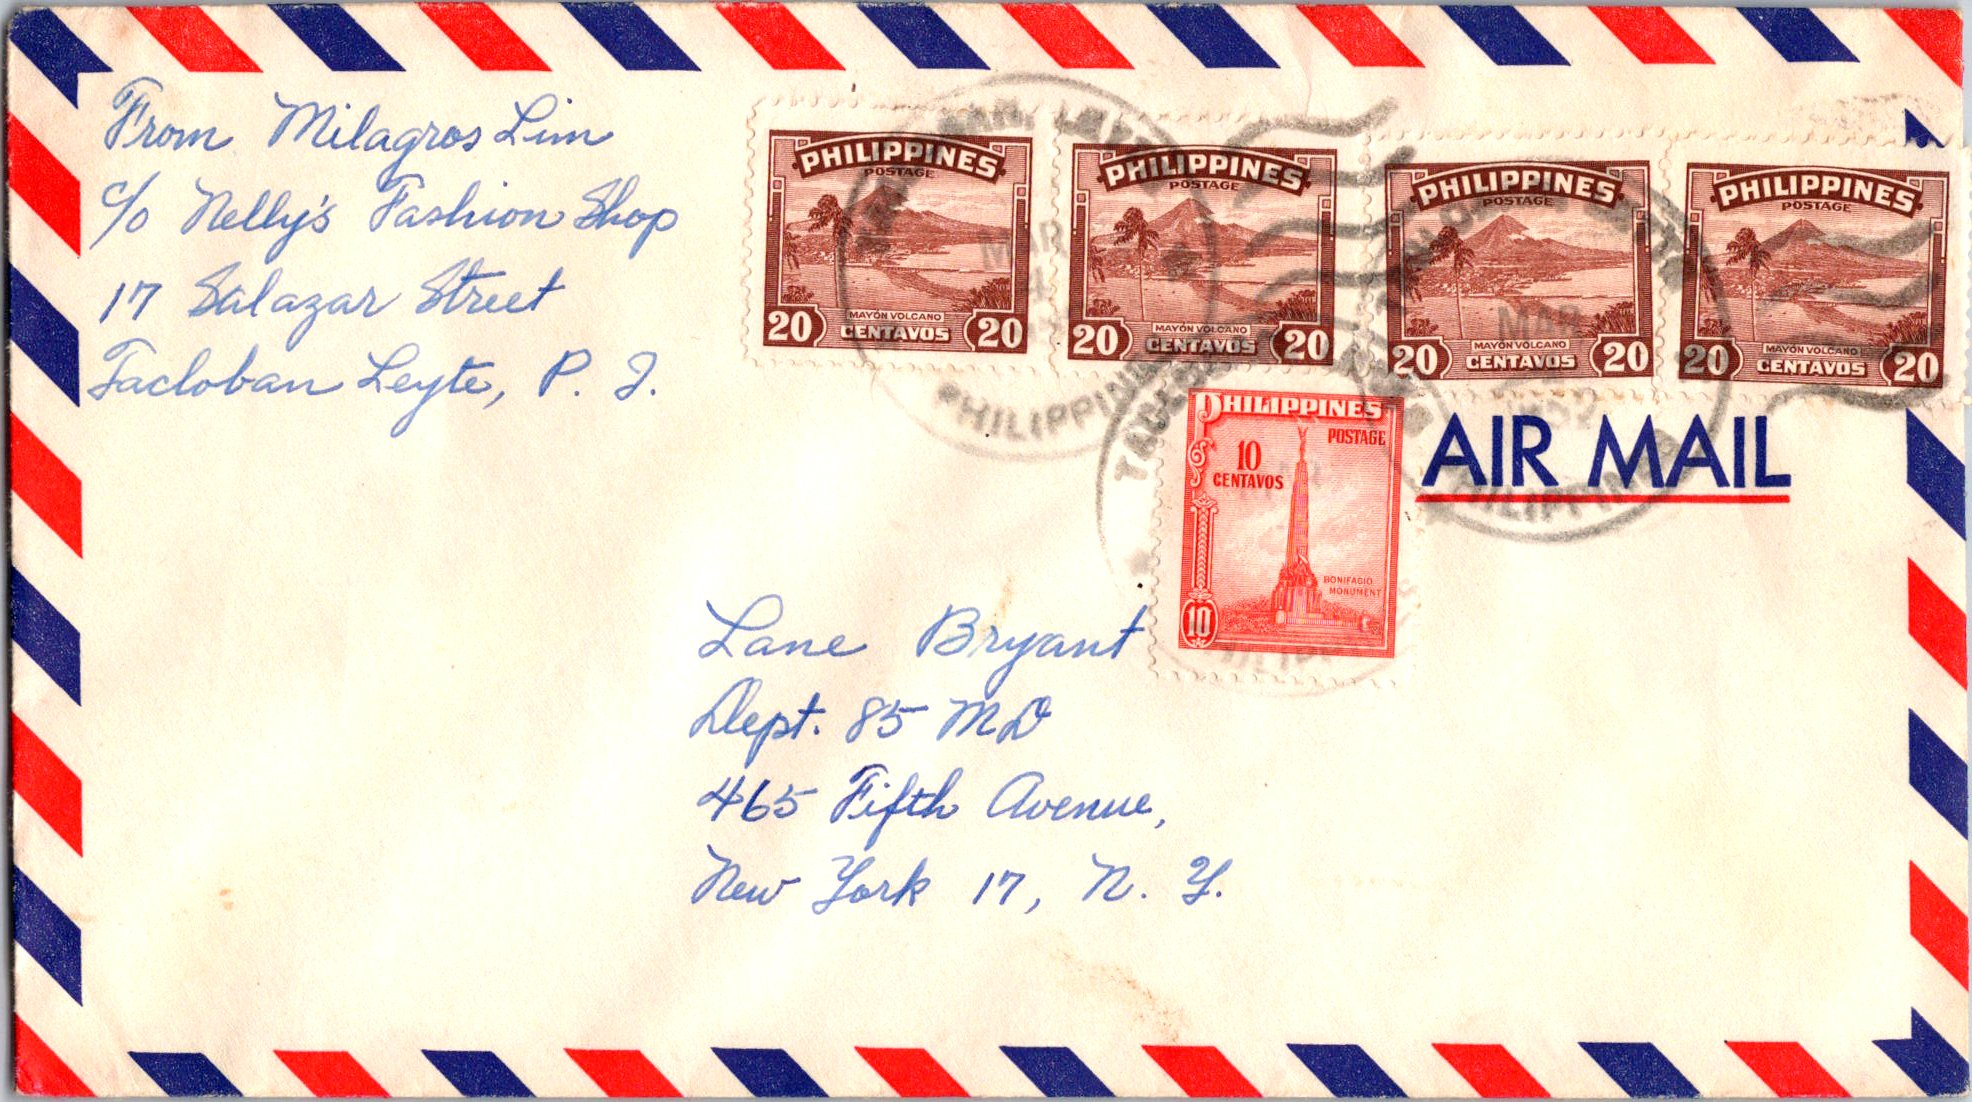 From Milagros Lim
c/o Nelly's Fashion Shop
17 Salazar Street
Tacloban Leyte, P. I.
PHILIPPINES
POSTAGE
MAYON VOLCANO
20 CENTAVOS 20
PHILIPPINES
POSTAGE
MAYON VOLCANO
20 CENTAVOS 20
PHILIPPINES
POSTAGE
MAYON VOLCANO
20 CENTAVOS 20
PHILIPPINES
POSTAGE
MAYON VOLCANO
20 CENTAVOS 20
MAR
PHILIPPINES
MAR
PHILIPPINES
PHILIPPINES
POSTAGE
10
CENTAVOS
BONIFACIO
MONUMENT
10
AIR MAIL
Lane Bryant
Dept. 85 MD
465 Fifth Avenue,
New York 17, N. Y.